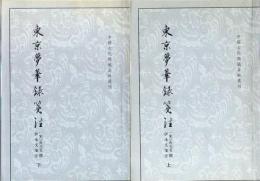 中國古代都城資料選刊
東京夢華錄箋注
下
中國古代都城資料選刊
東京夢華錄箋注
上